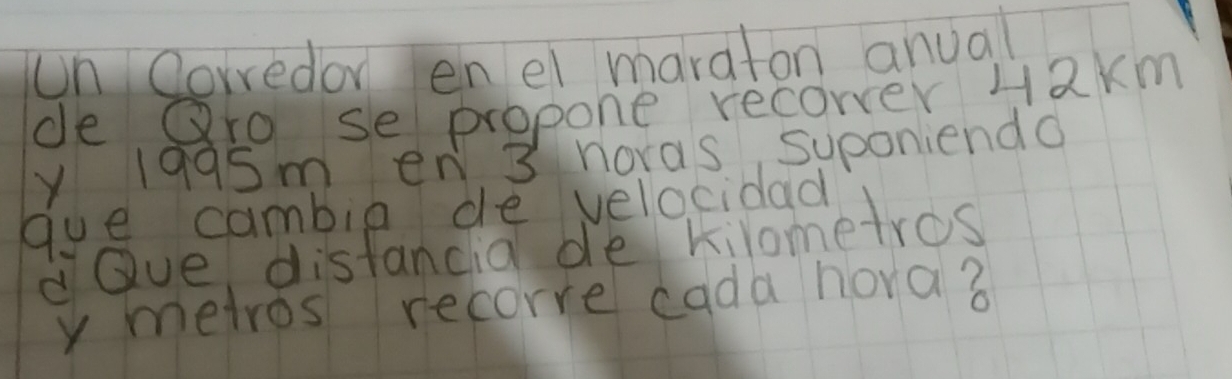 Un Corredor en el maraton anual
de Qro se propone recorrer 42km
y 1995m en 3 horas, suponiendo
que cambio de velocidad
¿Que distancia de kilometros
y metros recorre cada hora?